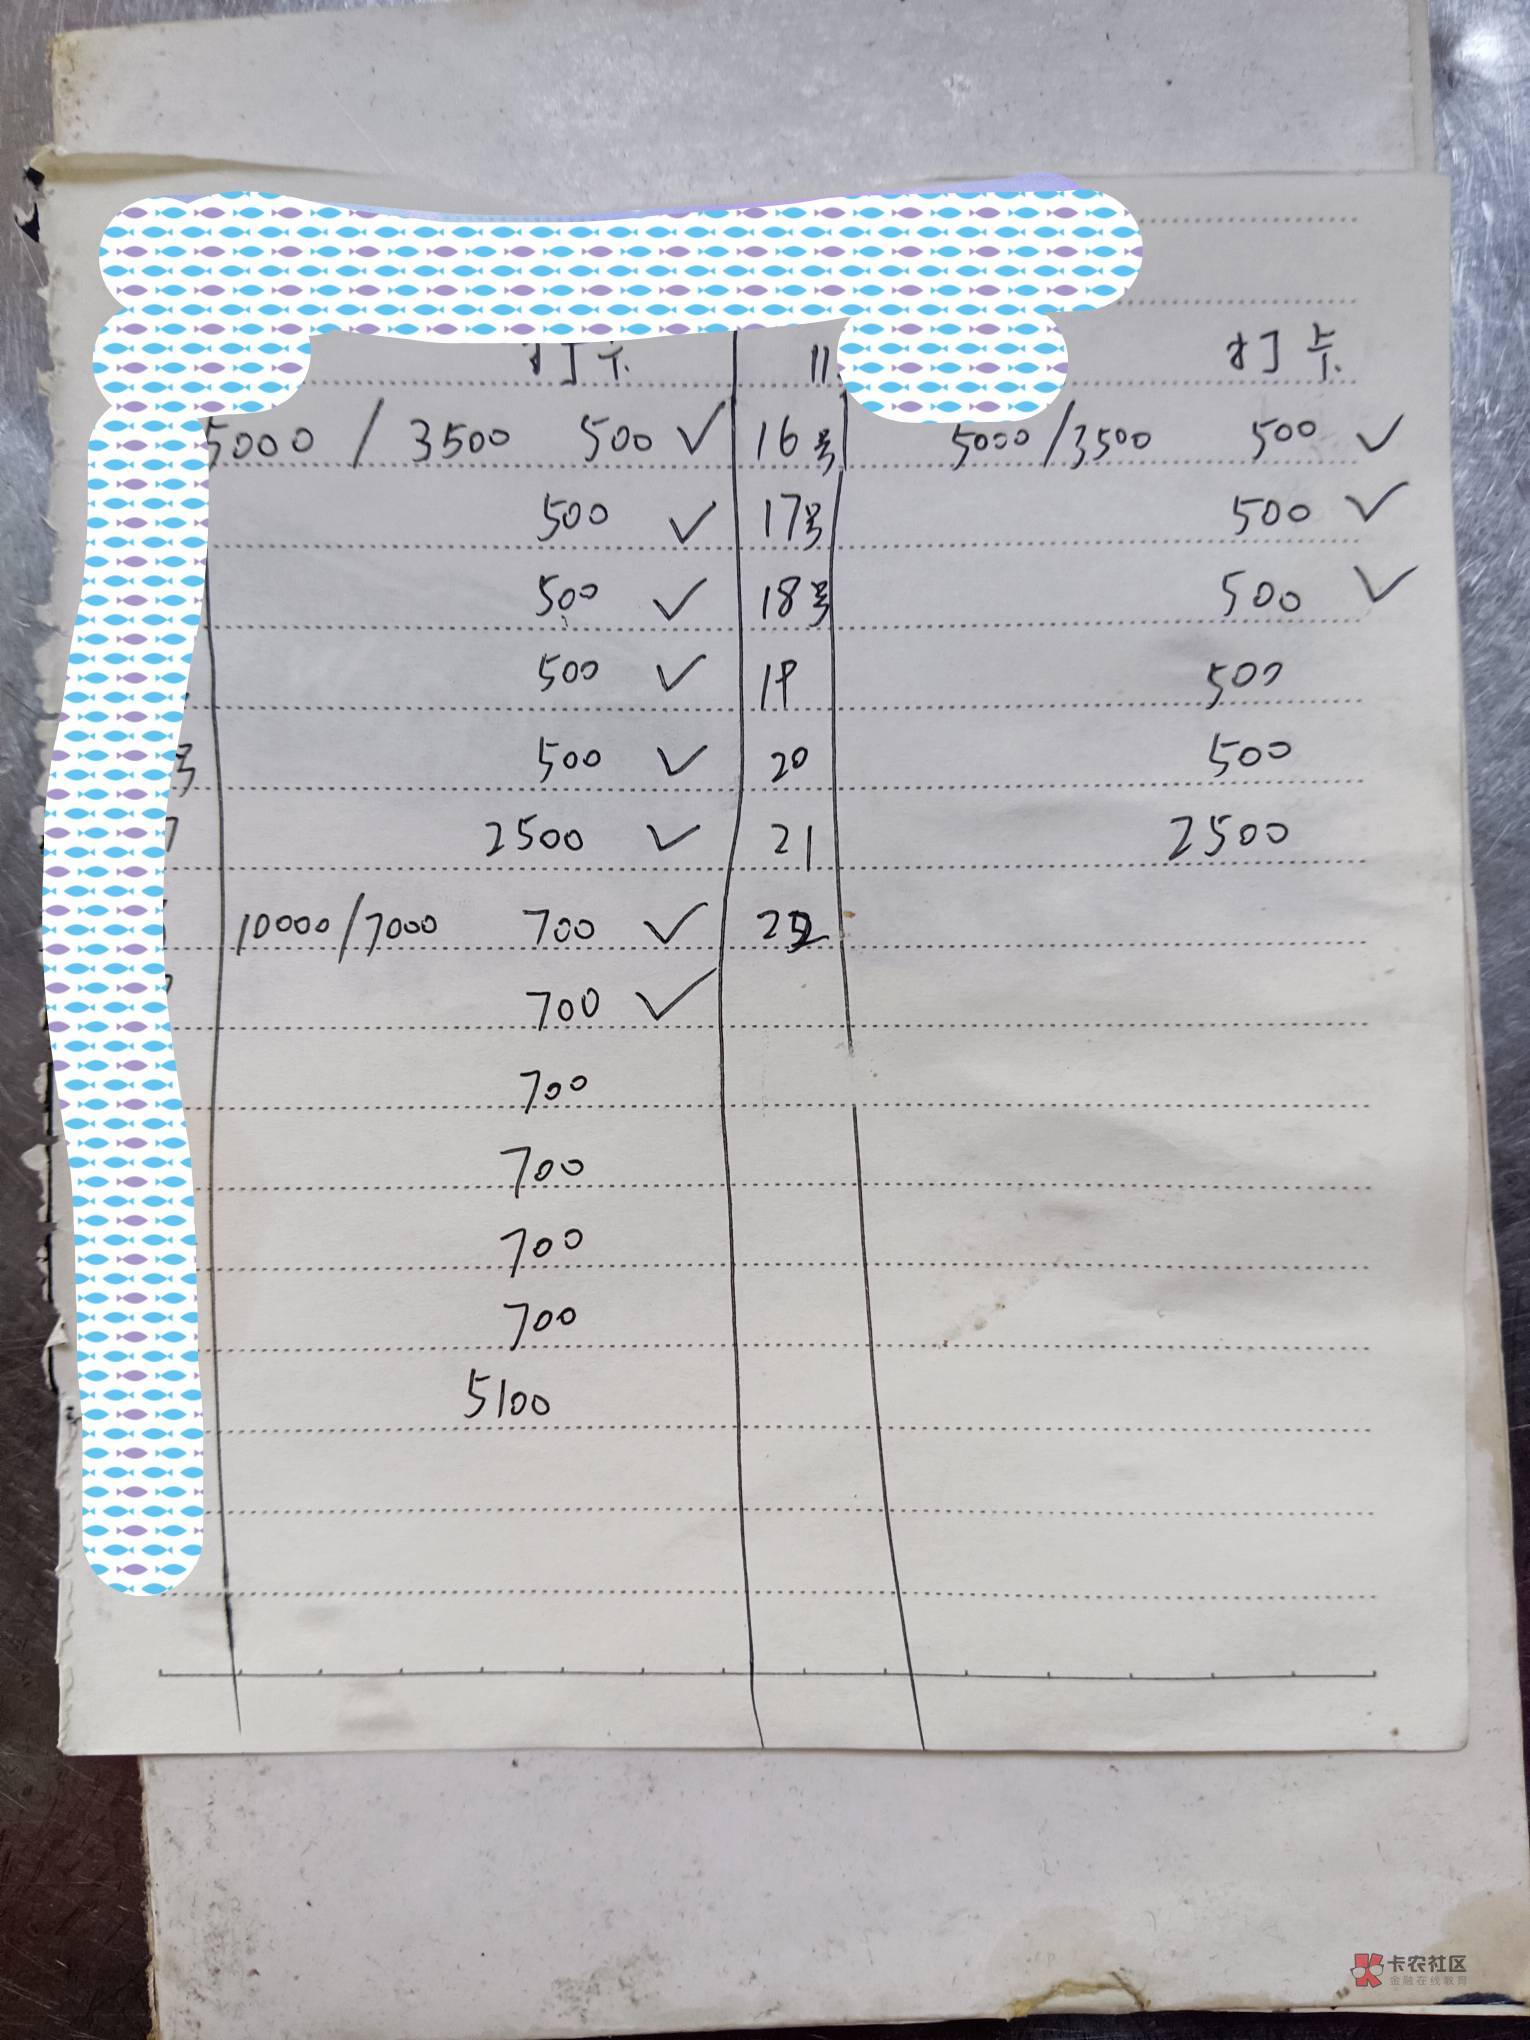 打卡 11. 打卡
5000 / 3500 500 ✓ 16号 5000/3500 500 ✓
500 ✓ 17号 500 ✓
500 ✓ 18号 500 ✓
500 ✓ 19 500
号 500 ✓ 20 500
2500 ✓ 21 2500
10000/7000 700 ✓ 22
700 ✓
700
700
700
700
5100
卡农社区
金融在线教育